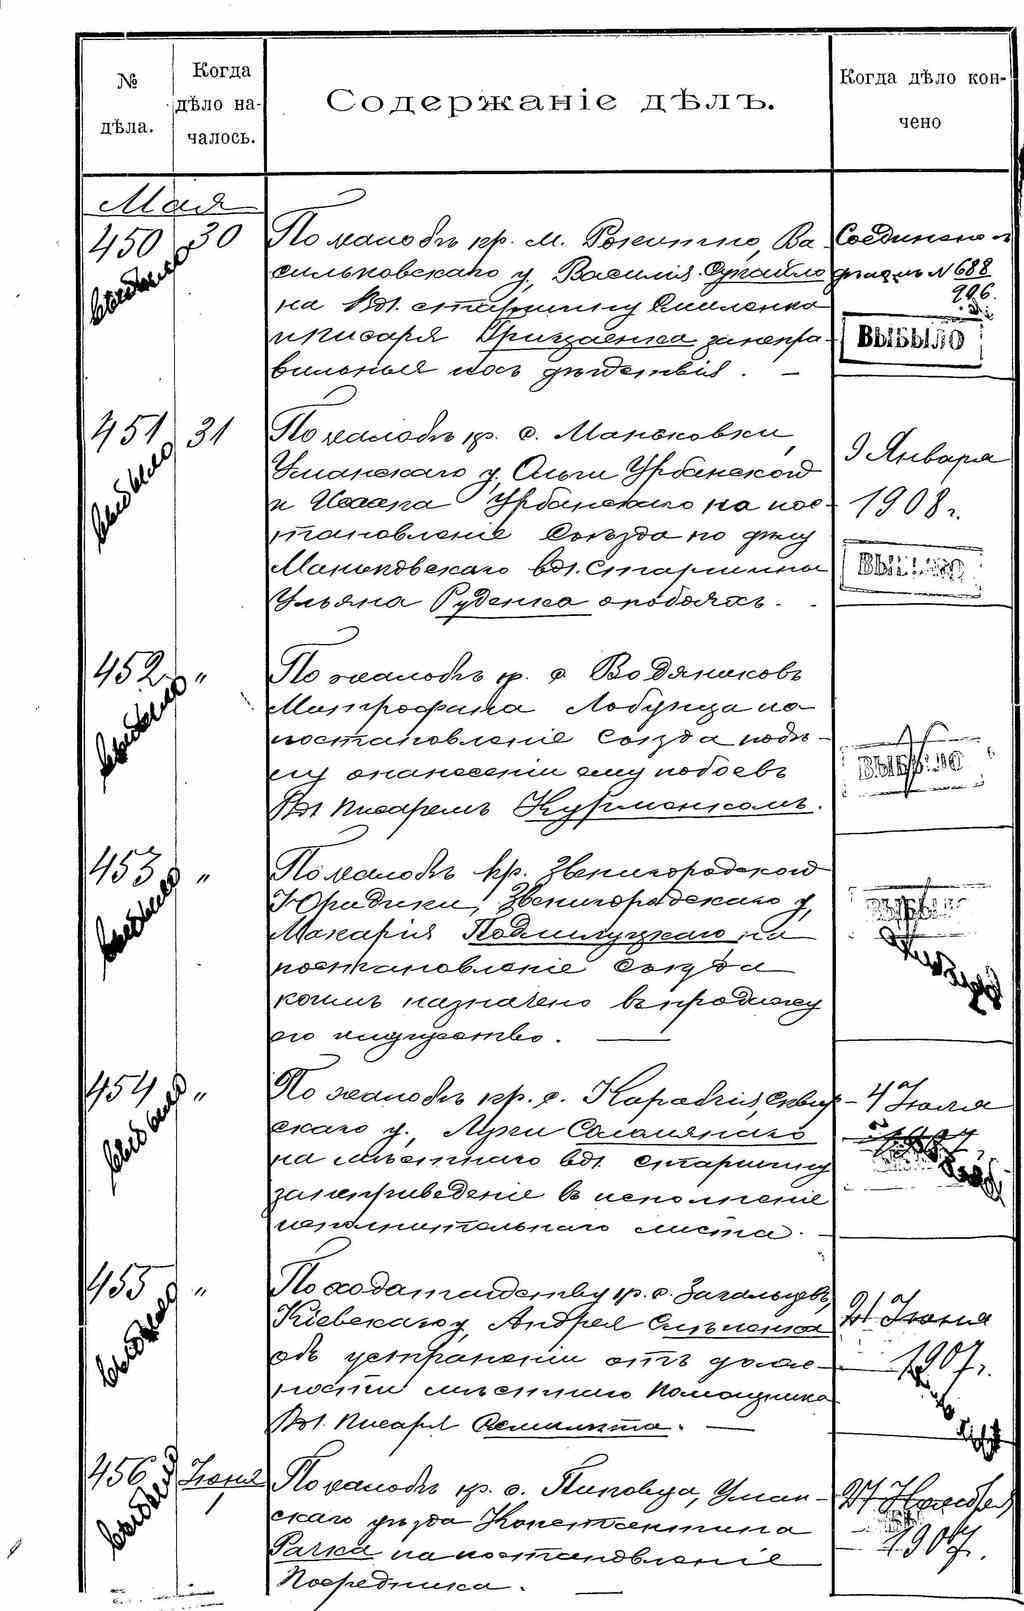 № дѣла.
Когда дѣло началось.
Содержаніе дѣлъ.
Когда дѣло кончено
Мая
450 30 По жалобѣ кр. м. Рокитно, Ва-
сильковскаго у, Василія
на Вол. старшину Смиленка
и писаря Григраенка за непра-
вильныя дѣйствія. —
Соединено съ
дѣломъ N 688
906.
ВЫБЫЛО
выбыло
451 31 По жалобѣ кр. с. Маньковки,
Уманскаго у, Ольги Урбанской
и Исаака Урбанскаго на пос-
тановленіе Съѣзда по дѣлу
Маньковскаго вол. Старшины
Ульяна Руденка о побояхъ.
9 Января
1908 г.
ВЫБЫЛО
выбыло
452 " По жалобѣ кр. с Водяниковъ
Митрофана Лобунца на
постановленіе Съѣзда по дѣ-
лу о нанесеніи ему побоевъ
Вол Писаремъ Курмонкомъ.
ВЫБЫЛО
выбыло
453 " По жалобѣ кр. Звенигородской
Юридики, Звенигородскаго у,
Макарія Подлилуцкаго, на
постановленіе Съѣзда
коимъ назначено въ продажу
его имущество. —
ВЫБЫЛО
выбыло
выбыло
454 " По жалобѣ кр. с. Карабчія, Сквир-
скаго у, Луки Соломянаго
на мѣстнаго вол. старшину
за неприведеніе въ исполненіе
исполнительнаго листа. —
4 Іюля
1907.
выбыло
455 " По ходатайству кр. с. Загальцевъ,
Кіевскаго у, Андрея
объ устраненіи отъ долж-
ности мѣстнаго Помощника
Вол. Писаря —
21 Іюня
1907 г.
выбыло
456 Іюня 1 По жалобѣ кр. с. Пиковца, Уман-
скаго уѣзда Константина
Рачка на постановленіе
Посредника. —
27 Ноября
1907.
выбыло